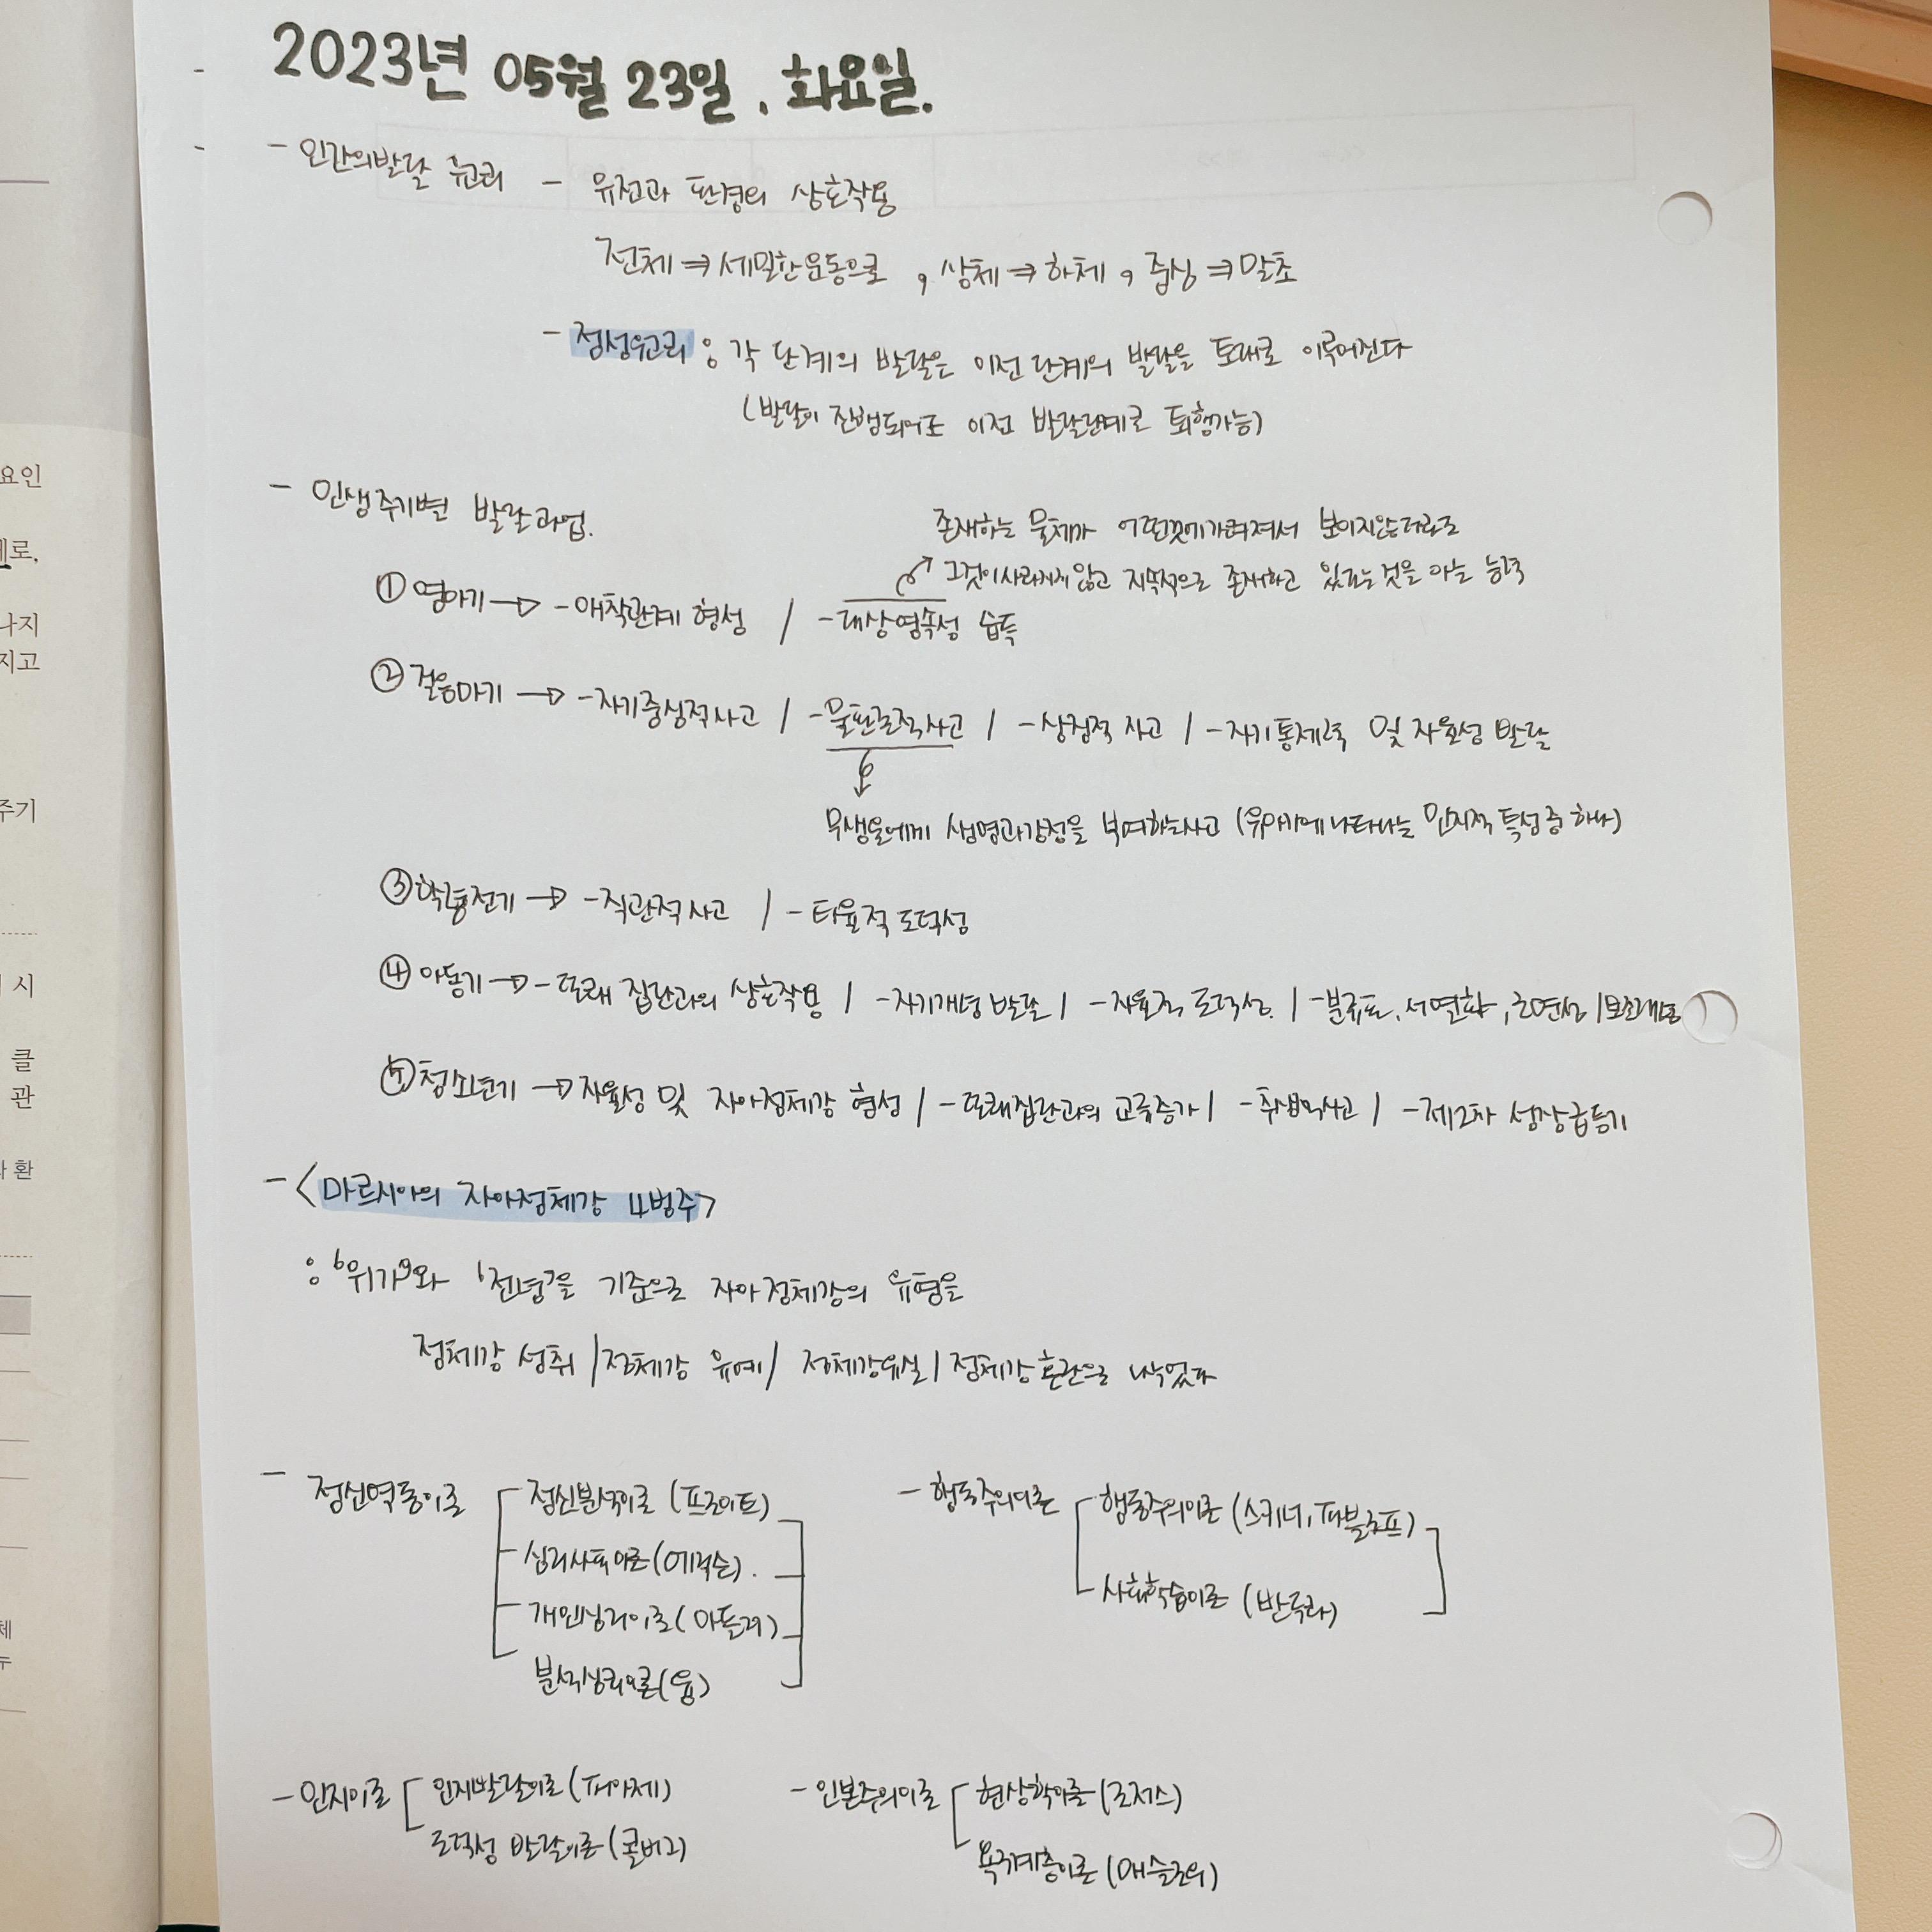 2023년 05월 23일, 화요일.
- 인간의발달 원리 - 유전과 환경의 상호작용
전체 ⇒ 세밀한운동으로 , 상체 ⇒ 하체, 중심 ⇒ 말초
- 점성원리 : 각 단계의 발달은 이전단계의 발달을 토대로 이루어진다
(발달이 진행되어도 이전 발달단계로 퇴행가능)
- 인생주기별 발달과업.
존재하는 물체가 어떤것에가려져서 보이지않더라도
그것이사라지지 않고 지속적으로 존재하고 있다는것을 아는 능력
① 영아기 → - 애착관계 형성 / - 대상영속성 습득
② 걸음마기 → - 자기중심적사고 / - 물활론적사고 / - 상징적 사고 / - 자기통제력 및 자율성 발달
무생물에게 생명과감정을 부여하는사고 (유아기에 나타나는 인지적 특성 중 하나)
③ 학령전기 → - 직관적 사고 / - 타율적 도덕성
④ 아동기 → - 또래 집단과의 상호작용 / - 자기개념 발달 / - 자율적 도덕성. / - 분류화, 서열화, /보존개념
⑤ 청소년기 → 자율성 및 자아정체감 형성 / - 또래집단과의 교류증가 / - 추상적사고 / - 제2차 성장급등기
- <마르시아의 자아정체감 4범주>
: '위기'와 '전념'을 기준으로 자아정체감의 유형을
정체감 성취 / 정체감 유예 / 정체감유실 / 정체감혼란으로 나누었다
- 정신역동이론
정신분석이론 (프로이트)
심리사회이론 (에릭슨).
개인심리이론 (아들러)
분석심리이론 (융)
- 행동주의이론
행동주의이론 (스키너, 파블로프)
사회학습이론 (반두라)
- 인지이론
인지발달이론 (피아제)
도덕성 발달이론 (콜버그)
- 인본주의이론
현상학이론 (로저스)
욕구계층이론 (매슬로우)
요인
로,
나지
지고
주기
시
클
관
환
체
누